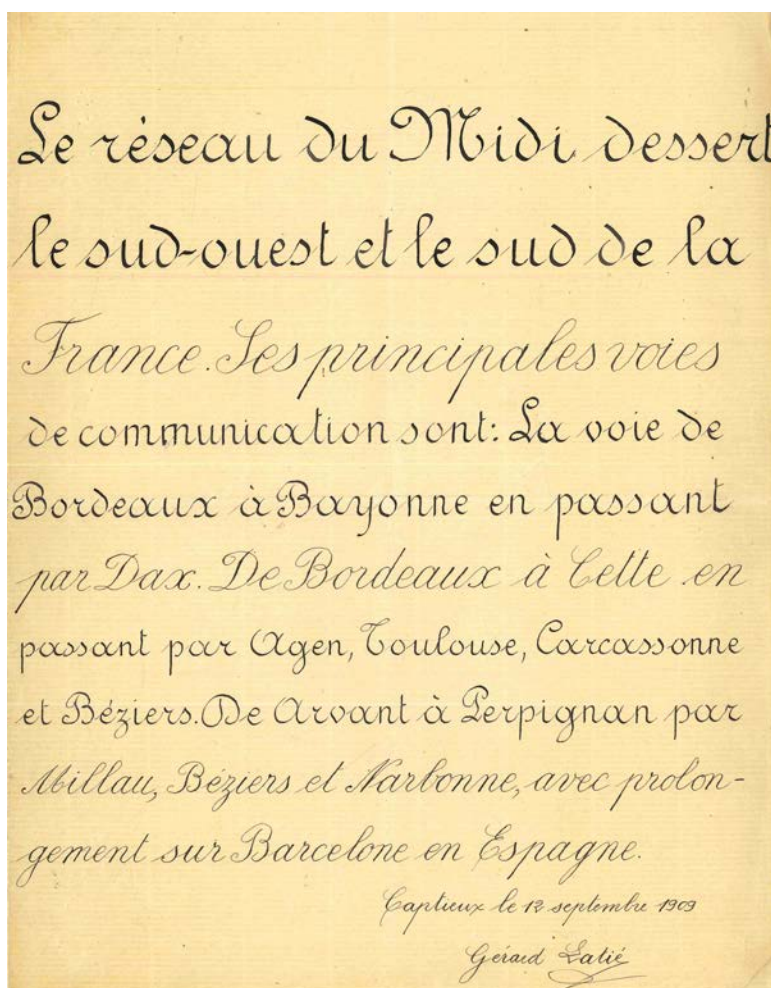 Le réseau du Midi dessert
le sud-ouest et le sud de la
France. Ses principales voies
de communication sont: La voie de
Bordeaux à Bayonne en passant
par Dax. De Bordeaux à Cette en
passant par Agen, Toulouse, Carcassonne
et Béziers. De Arvant à Perpignan par
Millau, Béziers et Narbonne, avec prolon-
gement sur Barcelone en Espagne.
Captieux le 12 septembre 1909
Gérard Latié